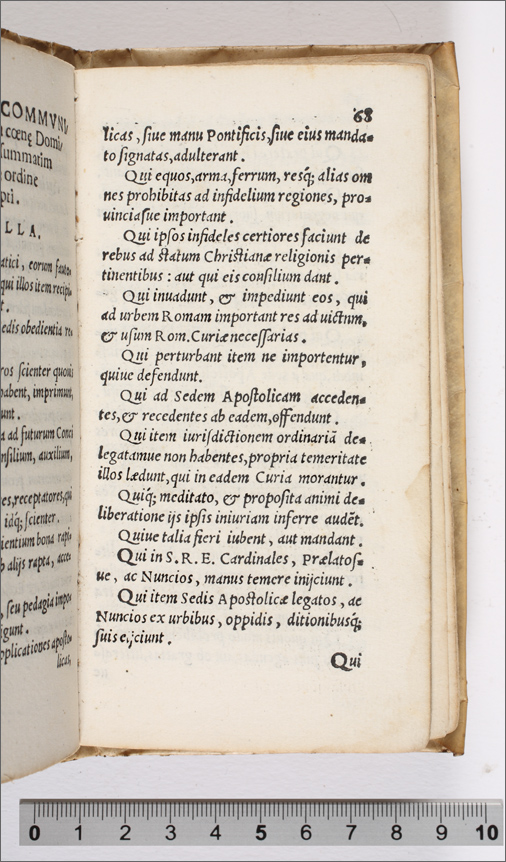 COMMVNI
cœnę Domi-
summatim
ordine
pti.
LLA.
atici, eorum fauto
qui illos item recipi
t.
edis obedientia re
ros scienter quouis
habent, imprimunt,
unt.
a ad futurum Conci
nsilium, auxilium,
es, receptatores, qui
idq́; scienter.
ientium bona rapi-
b alijs rapta, acce-
, seu pedagia impo
igunt.
pplicationes aposto-
licas,
68
licas, siue manu Pontificis, siue eius manda-
to signatas, adulterant.
Qui equos, arma, ferrum, resq́; alias om
nes prohibitas ad infidelium regiones, pro-
uinciasue important.
Qui ipsos infideles certiores faciunt de
rebus ad statum Christianæ religionis per-
tinentibus: aut qui eis consilium dant.
Qui inuadunt, & impediunt eos, qui
ad urbem Romam important res ad uictum,
& usum Rom. Curiæ necessarias.
Qui perturbant item ne importentur,
quiue defendunt.
Qui ad Sedem Apostolicam acceden-
tes, & recedentes ab eadem, offendunt.
Qui item iurisdictionem ordinariā de-
legatamue non habentes, propria temeritate
illos lædunt, qui in eadem Curia morantur.
Quiq́; meditato, & proposita animi de-
liberatione ijs ipsis iniuriam inferre audēt.
Quiue talia fieri iubent, aut mandant.
Qui in S. R. E. Cardinales, Prælatos-
ue, ac Nuncios, manus temere inijciunt.
Qui item Sedis Apostolicæ legatos, ac
Nuncios ex urbibus, oppidis, ditionibusq́;
suis eijciunt.
Qui
0 1 2 3 4 5 6 7 8 9 10